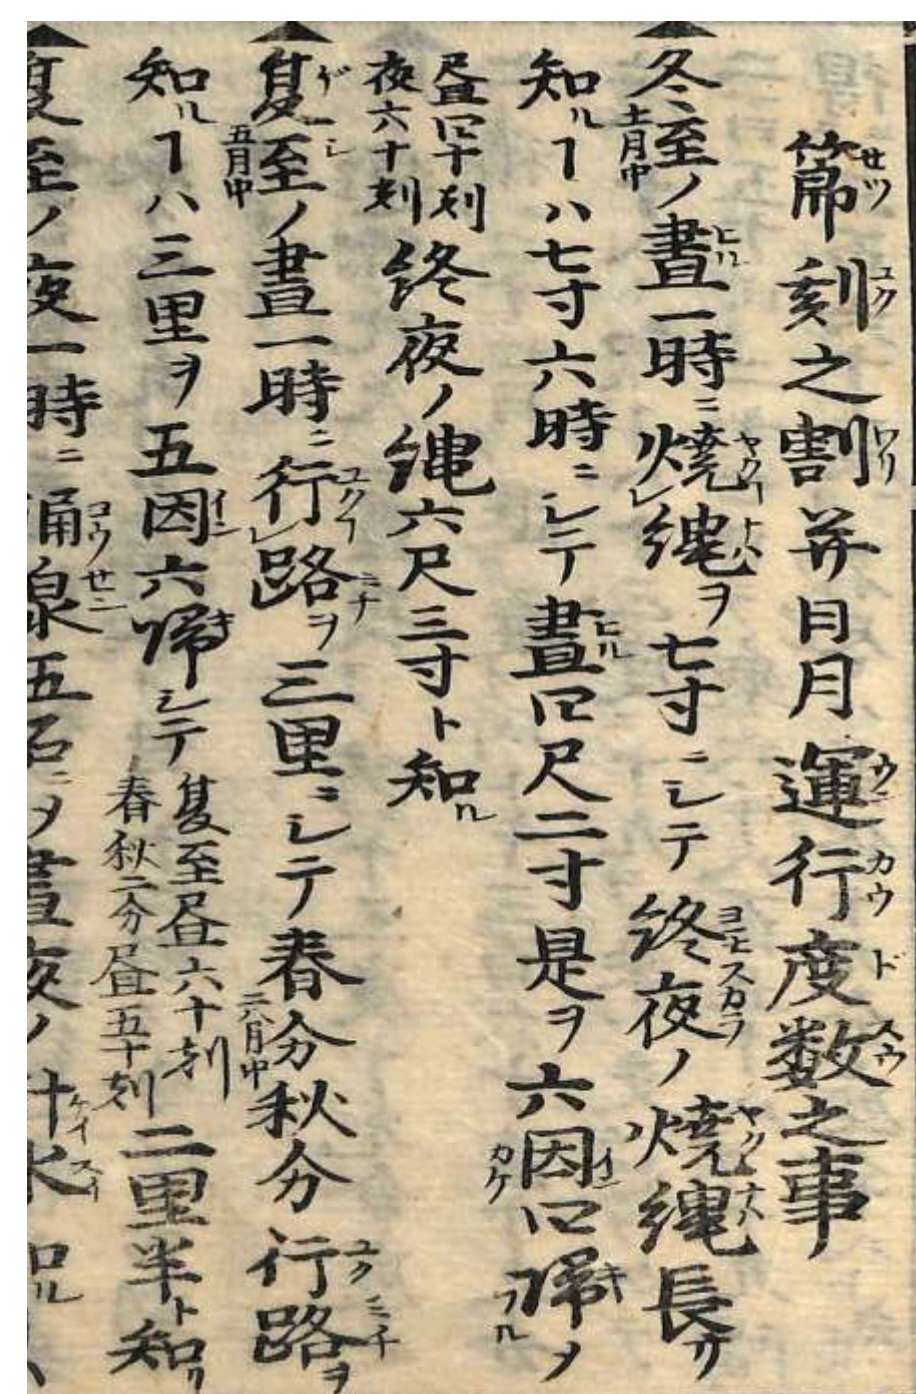 節刻之割并日月運行度数之事
冬至ノ晝一時ニ焼縄ヲ七寸ニシテ終夜ノ焼縄長サ
知ルヿハ七寸六時ニシテ晝四尺二寸是ヲ六因四帰メ
昼四十刻
夜六十刻
終夜ノ縄六尺三寸ト知ル
夏至ノ晝一時ニ行路ヲ三里ニシテ春分秋分行路ヲ
知ルヿハ三里ヲ五因六帰シテ
夏至昼六十刻
春秋二分昼五十刻
二里半ト知リ
夏至ノ夜一時ニ涌泉五石ニメ晝夜ノ計水知ル